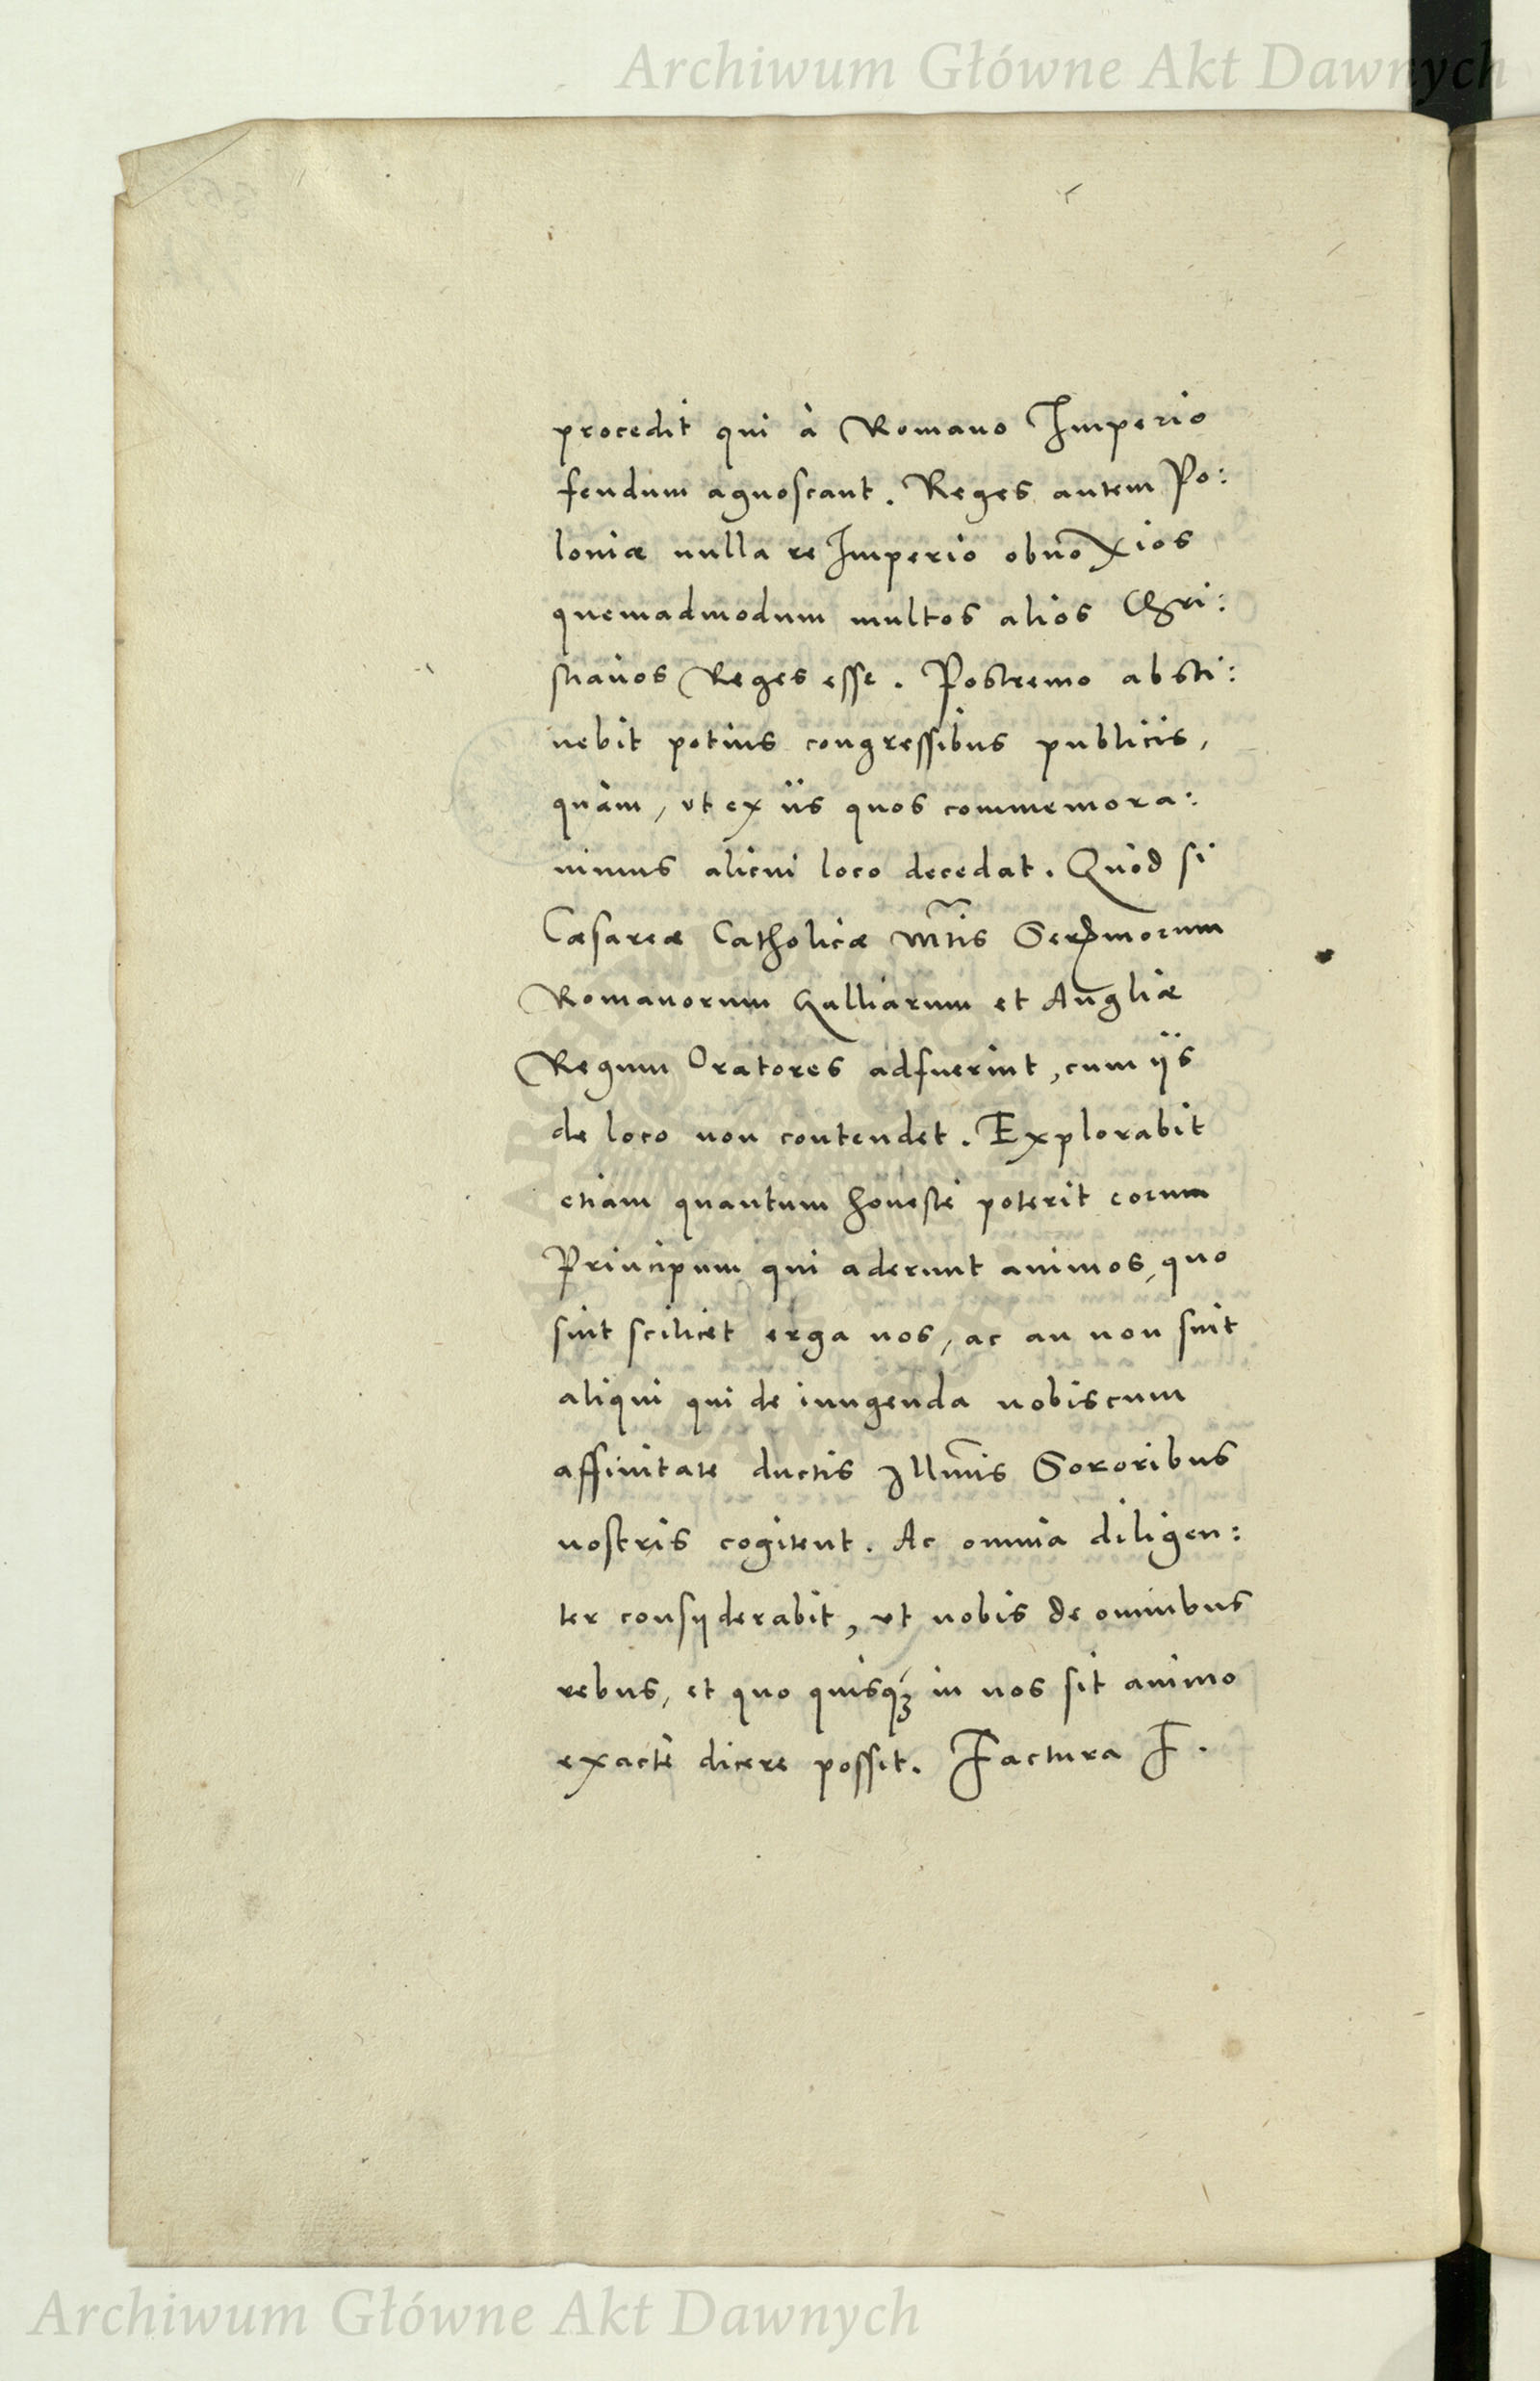 Archiwum Główne Akt Dawnych
procedit qui à Romano Imperio
feudum agnoscant. Reges autem Po:
loniæ nulla re Imperio obnoxios
quemadmodum multos alios Chri:
stianos Reges esse. Postremo absti:
nebit potius congressibus publicis,
quàm, vt ex iis quos commemora:
uimus alicui loco decedat. Quòd si
Cæsareæ Catholicæ Mtis Sermorum
Romanorum Galliarum et Angliæ
Regum Oratores adfuerint, cum ijs
de loco non contendet. Explorabit
etiam quantum honestè poterit eorum
Principum qui aderunt animos, quo
sint scilicet erga nos, ac an non sint
aliqui qui de iungenda nobiscum
affinitate ductis Illmis Sororibus
nostris cogitent. Ac omnia diligen:
ter consyderabit, vt nobis de omnibus
rebus, et quo quisq3 in nos sit animo
exactè dicere possit. Factura F.
Archiwum Główne Akt Dawnych